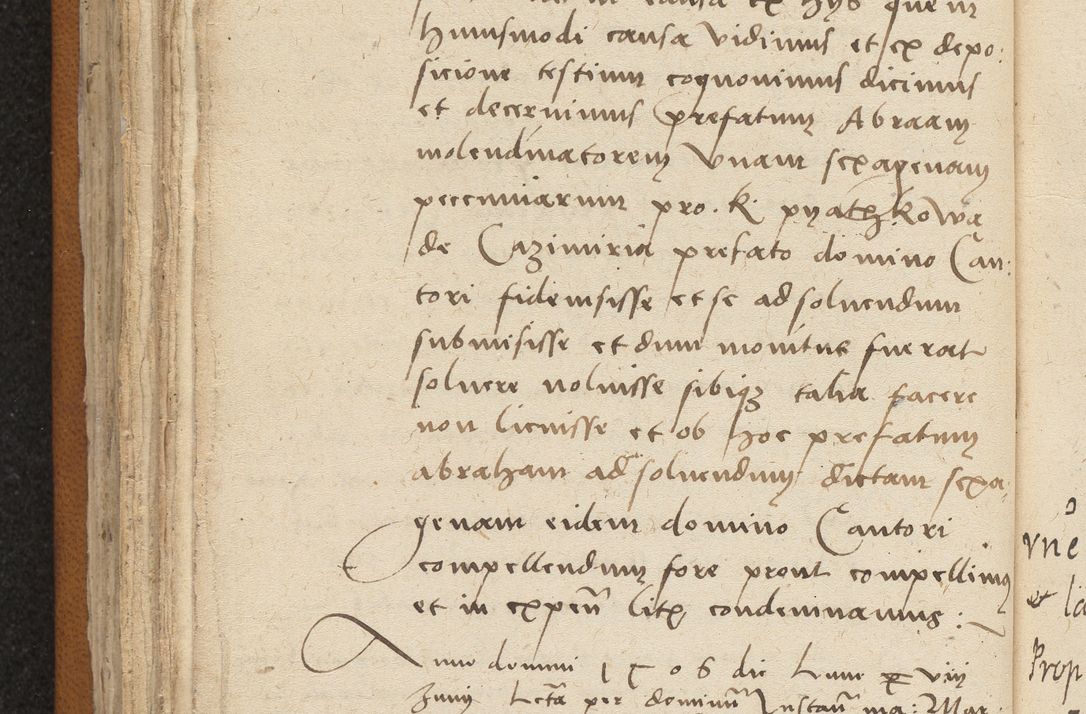 in causa ex hys que in
huiusmodi causa vidimus et ex depo:
sicione testium cognovimus dicimus
et decernimus prefatum Abraam
molendinatorem vnam sexagenam
pecuniarum pro . K . pyathkowa
de Cazimiria prefato domino Can:
tori fideiussisse et se ad soluendum
submisisse et dum monitus fuerat
soluere noluisse sibiqz talia facere
non licuisse et ob hoc prefatum
abraham ad soluendum dictam sexa:
genam eidem domino Cantori
compellendum fore prout compellimus
et in expen litis condemnamus :
Anno domini 1506 die Lune viii
Junij Lcta per dominu Instan ma: Mar:
vne
et
Prop